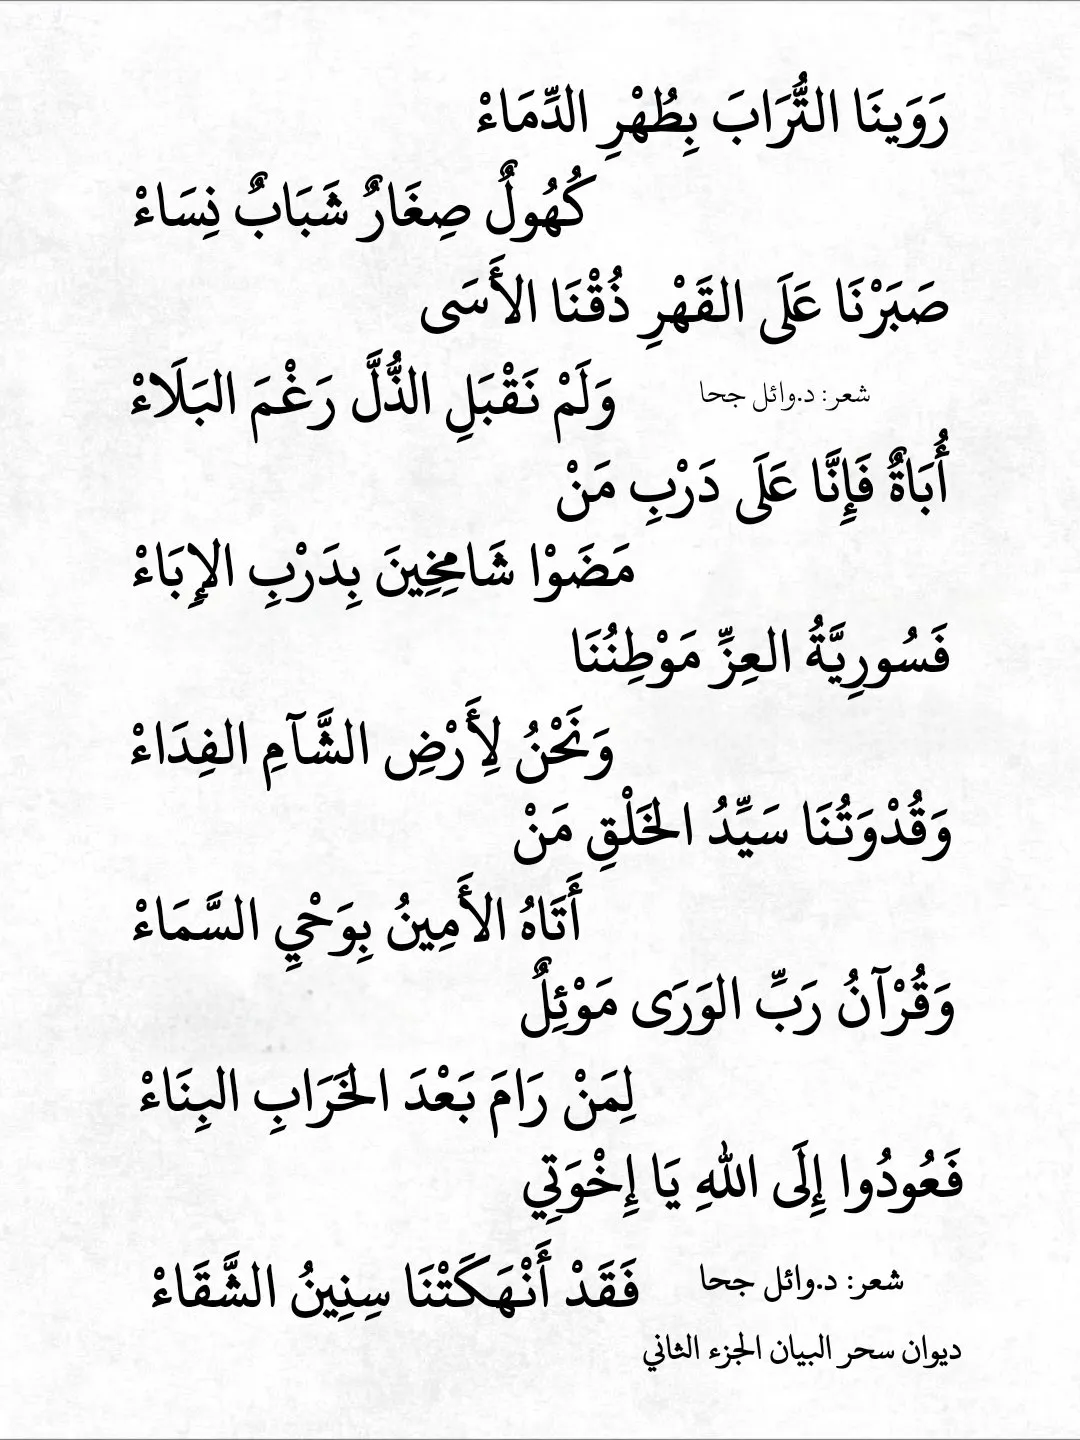 رَوَينَا التُّرَابَ بِطُهْرِ الدِّمَاءْ
كُهُولٌ صِغَارٌ شَبَابٌ نِسَاءْ
صَبَرْنَا عَلَى القَهْرِ ذُقْنَا الأَسَى
وَلَمْ نَقْبَلِ الذُّلَّ رَغْمَ البَلَاءْ
شعر: د.وائل جحا
أُبَاةٌ فَإِنَّا عَلَى دَرْبِ مَنْ
مَضَوْا شَامِخِينَ بِدَرْبِ الإِبَاءْ
فَسُورِيَّةُ العِزِّ مَوْطِنُنَا
وَنَحْنُ لِأَرْضِ الشَّآمِ الفِدَاءْ
وَقُدْوَتُنَا سَيِّدُ الخَلْقِ مَنْ
أَتَاهُ الأَمِينُ بِوَحْيِ السَّمَاءْ
وَقُرْآنُ رَبِّ الوَرَى مَوْئِلٌ
لِمَنْ رَامَ بَعْدَ الخَرَابِ البِنَاءْ
فَعُودُوا إِلَى اللهِ يَا إِخْوَتِي
فَقَدْ أَنْهَكَتْنَا سِنِينُ الشَّقَاءْ
شعر: د.وائل جحا
ديوان سحر البيان الجزء الثاني